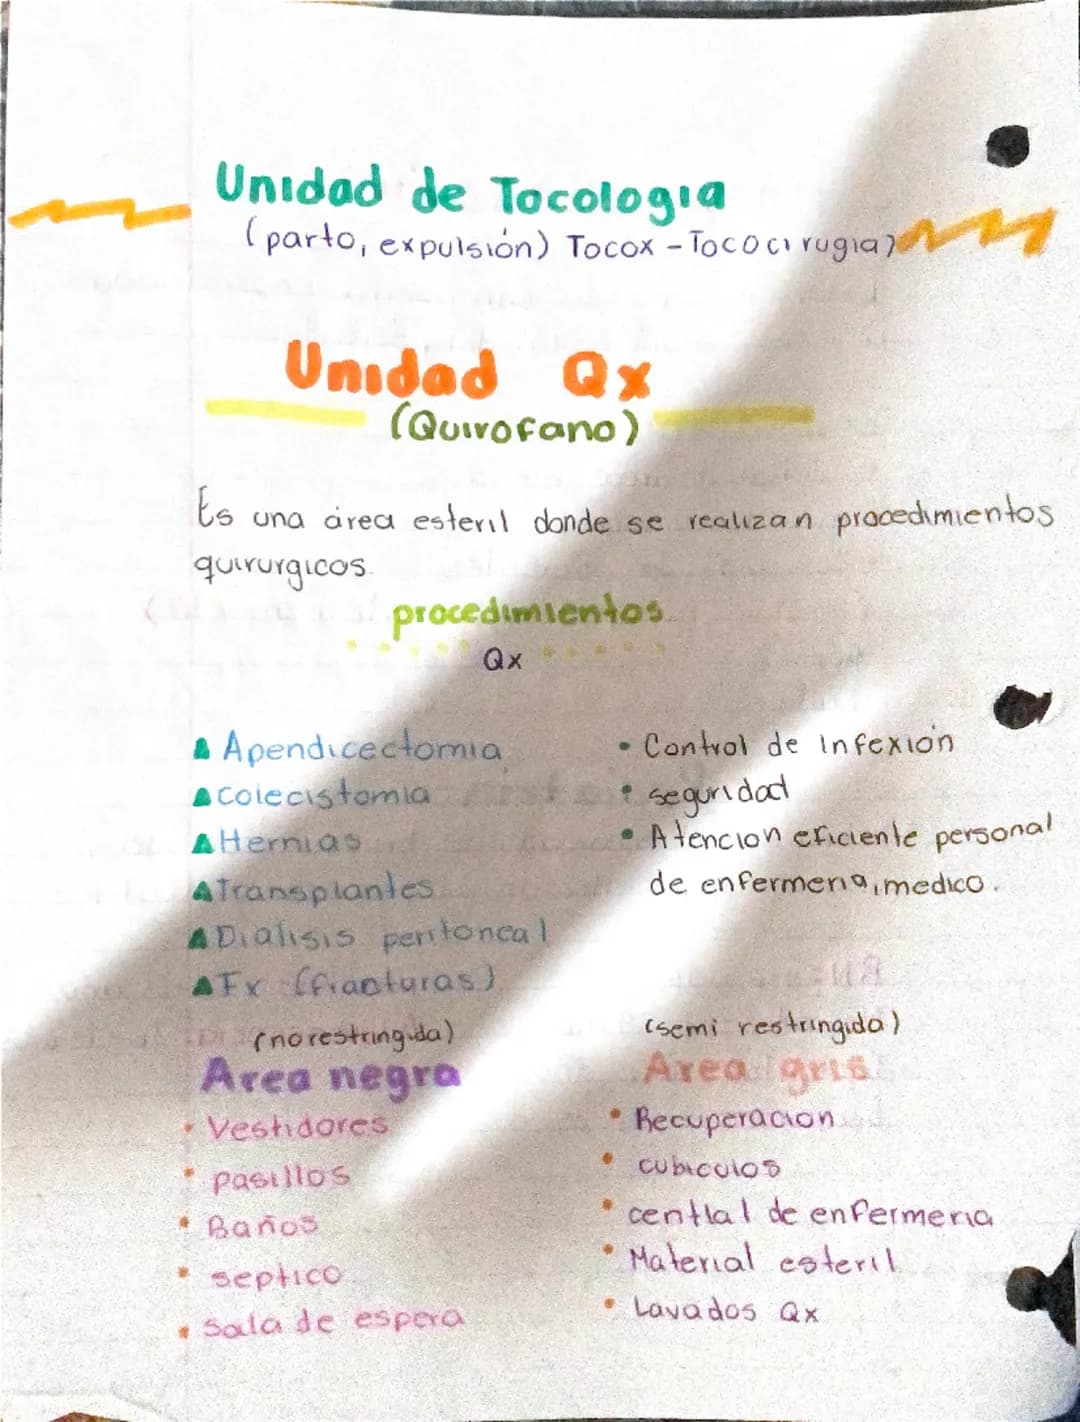 Unidad de Tocologia
(parto, expulsión) Tocox - Tococirugia)
Unidad Qx
(Quirofano)
Es una área esteril donde se realizan procedimientos
quirurgicos.
procedimientos
Qx
Apendicectomia
Colecistomia
Hernias
Transplantes
Dialisis peritoneal
Fx (fracturas)
• Control de Infexión
• seguridad
• Atencion eficiente personal
de enfermeria, medico.
(no restringida)
Area negra
• Vestidores
• pasillos
• Baños
• septico
• Sala de espera
(semi restringida)
Area gris
• Recuperacion
• cubiculos
• central de enfermeria
• Material esteril
• Lavados Qx